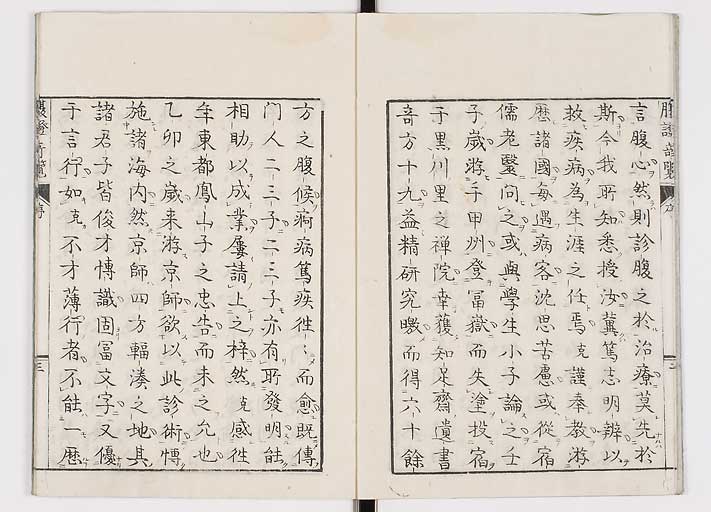 言腹心然則診腹之於治療莫先於
斯今我所知悉授汝冀篤志明辨以
救疾病為生涯之任焉克謹奉教游
歷諸國每遇病客沈思苦慮或從宿
儒老醫問之或與學生小子論之壬
子歲游于甲州登冨嶽而失塗投宿
于黒川里之禅院幸獲知足齋遺書
竒方十九益精研究曒而得六十餘
方之腹候痾病篤疾徃〻而愈既傳
門人二三子二三子亦有所發明能
相助以成業屢請上之梓然克感徃
年東都鳳山子之忠告而未之允也
乙卯之歲来游京師欲以此診術博
施諸海内然京師四方輻湊之地其
諸君子皆俊才博識固冨文字又優
于言行如克不才薄行者不能一歷